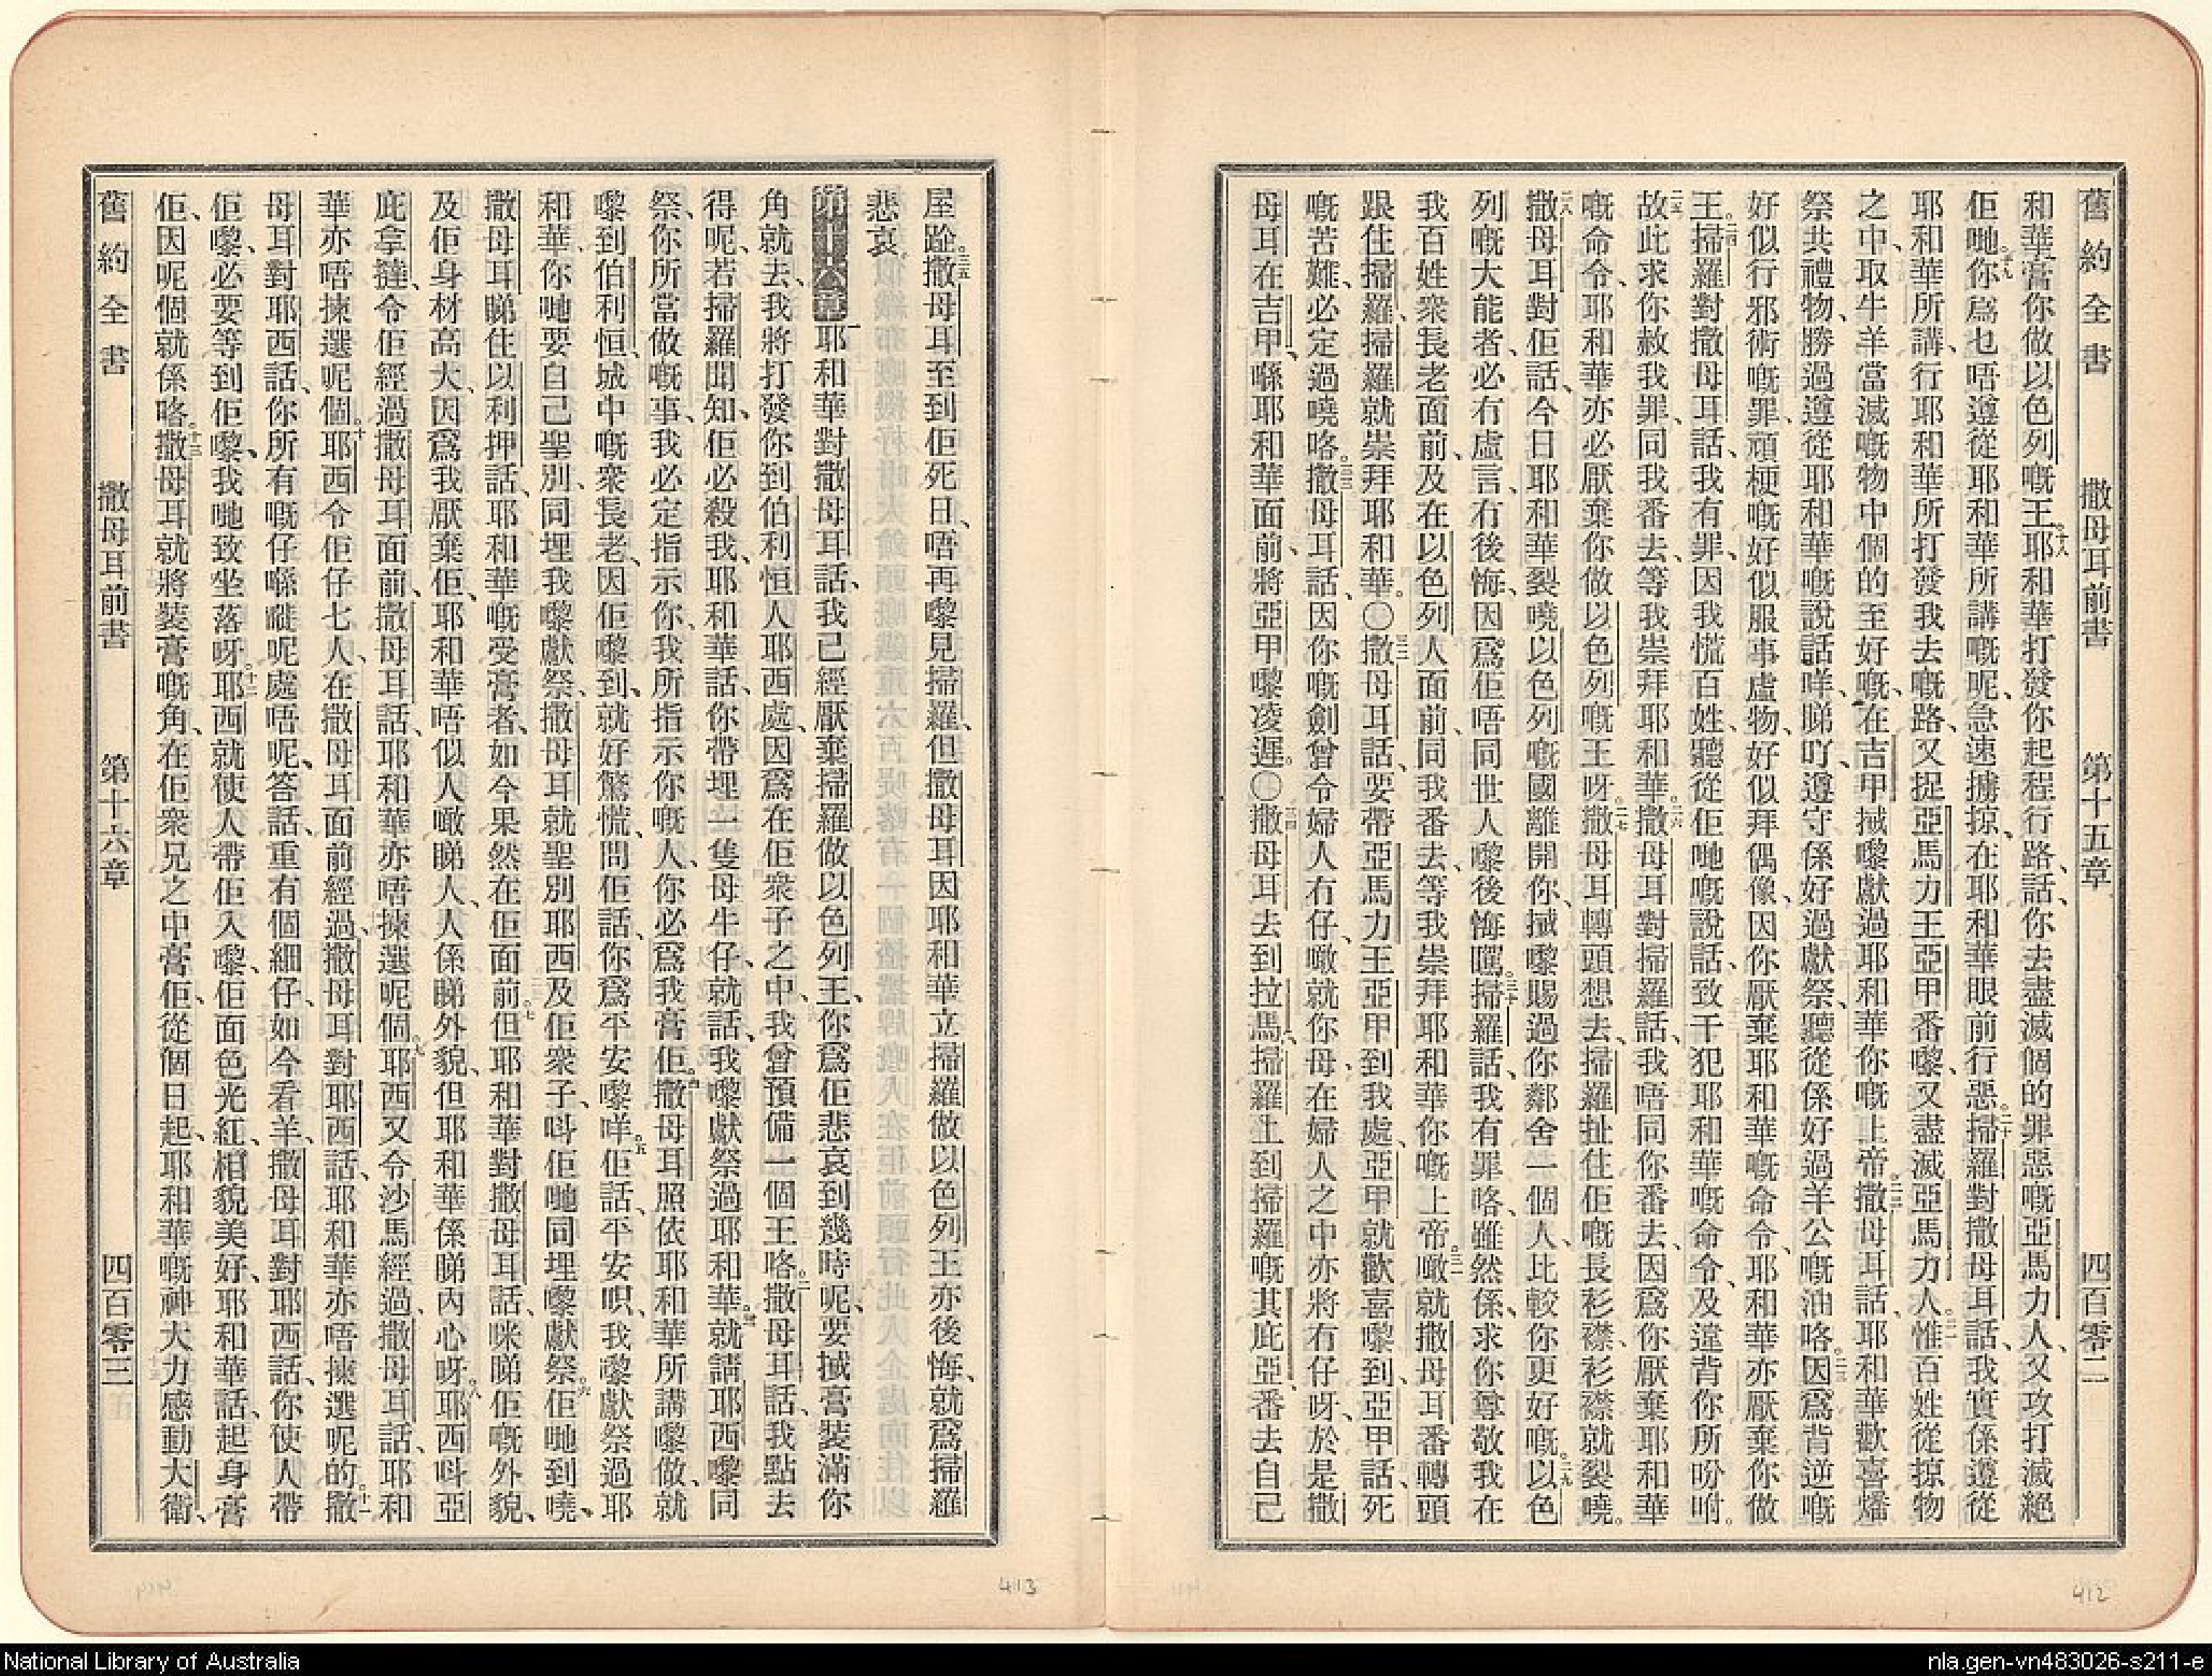 舊約全書 撒母耳前書 第十五章 四百零二
和華膏你做以色列嘅王。十八耶和華打發你起程行路、話、你去盡滅個的罪惡嘅亞馬力人、又攻打滅絕
佢哋。十九你爲乜唔遵從耶和華所講嘅呢、急速擄掠、在耶和華眼前行惡。二十掃羅對撒母耳話、我實係遵從
耶和華所講、行耶和華所打發我去嘅路、又捉亞馬力王亞甲番嚟、又盡滅亞馬力人。二一惟百姓從掠物
之中、取牛羊當滅嘅物中個的至好嘅、在吉甲搣嚟獻過耶和華你嘅上帝。二二撒母耳話、耶和華歡喜燔
祭共禮物、勝過遵從耶和華嘅說話咩、睇吖、遵守係好過獻祭、聽從係好過羊公嘅油咯。二三因爲背逆嘅
好似行邪術嘅罪、頑梗嘅好似服事虛物、好似拜偶像、因你厭棄耶和華嘅命令、耶和華亦厭棄你做
王。二四掃羅對撒母耳話、我有罪、因我慌百姓、聽從佢哋嘅說話、致干犯耶和華嘅命令、及違背你所吩咐。
二五故此求你赦我罪、同我番去、等我崇拜耶和華。二六撒母耳對掃羅話、我唔同你番去、因爲你厭棄耶和華
嘅命令、耶和華亦必厭棄你做以色列嘅王呀。二七撒母耳轉頭想去、掃羅扯住佢嘅長衫襟、衫襟就裂嘵。
二八撒母耳對佢話、今日耶和華裂嘵以色列嘅國離開你、搣嚟賜過你鄰舍一個人、比較你更好嘅。二九以色
列嘅大能者、必冇虛言、冇後悔、因爲佢唔同世人嚟後悔嘅。三十掃羅話、我有罪咯、雖然係、求你尊敬我在
我百姓衆長老面前、及在以色列人面前、同我番去、等我崇拜耶和華你嘅上帝。三一噉就撒母耳番轉頭
跟住掃羅、掃羅就崇拜耶和華。〇三二撒母耳話、要帶亞馬力王亞甲到我處、亞甲就歡喜嚟到、亞甲話、死
嘅苦難、必定過嘵咯。三三撒母耳話、因你嘅劍曾令婦人冇仔、噉就你母在婦人之中亦將冇仔呀、於是撒
母耳在吉甲、喺耶和華面前、將亞甲嚟凌遲。〇三四撒母耳去到拉馬、掃羅上到掃羅嘅其庇亞、番去自己
屋跄。三五撒母耳至到佢死日、唔再嚟見掃羅、但撒母耳因耶和華立掃羅做以色列王亦後悔、就爲掃羅
悲哀。
第十六章 耶和華對撒母耳話、我已經厭棄掃羅做以色列王、你爲佢悲哀到幾時呢、要搣膏裝滿你
角就去、我將打發你到伯利恒人耶西處、因爲在佢衆子之中、我曾預備一個王咯。二撒母耳話、我點去
得呢、若掃羅聞知、佢必殺我、耶和華話、你帶埋一隻母牛仔、就話、我嚟獻祭過耶和華。三就請耶西嚟同
祭、你所當做嘅事、我必定指示你、我所指示你嘅人、你必爲我膏佢。四撒母耳照依耶和華所講嚟做、就
嚟到伯利恒、城中嘅衆長老、因佢嚟到、就好驚慌、問佢話、你爲平安嚟咩。五佢話、平安呮、我嚟獻祭過耶
和華、你哋要自己聖別、同埋我嚟獻祭、撒母耳就聖別耶西及佢衆子、呌佢哋同埋嚟獻祭。六佢哋到嘵、
撒母耳睇住以利押話、耶和華嘅受膏者、如今果然在佢面前。七但耶和華對撒母耳話、咪睇佢嘅外貌、
及佢身材高大、因爲我厭棄佢、耶和華唔似人噉睇人、人係睇外貌、但耶和華係睇內心呀。八耶西呌亞
庇拿撻、令佢經過撒母耳面前、撒母耳話、耶和華亦唔揀選呢個。九耶西又令沙馬經過、撒母耳話、耶和
華亦唔揀選呢個。十耶西令佢仔七人、在撒母耳面前經過、撒母耳對耶西話、耶和華亦唔揀選呢的。十一撒
母耳對耶西話、你所有嘅仔喺嚱呢處唔呢、答話、重有個細仔、如今看羊、撒母耳對耶西話、你使人帶
佢嚟、必要等到佢嚟、我哋致坐落呀。十二耶西就使人帶佢入嚟、佢面色光紅、相貌美好、耶和華話、起身膏
佢、因呢個就係咯。十三撒母耳就將裝膏嘅角、在佢衆兄之中膏佢、從個日起、耶和華嘅神大力感動大衛、
舊約全書 撒母耳前書 第十六章 四百零三
413
412
National Library of Australia
nla.gen-vn483026-s211-e